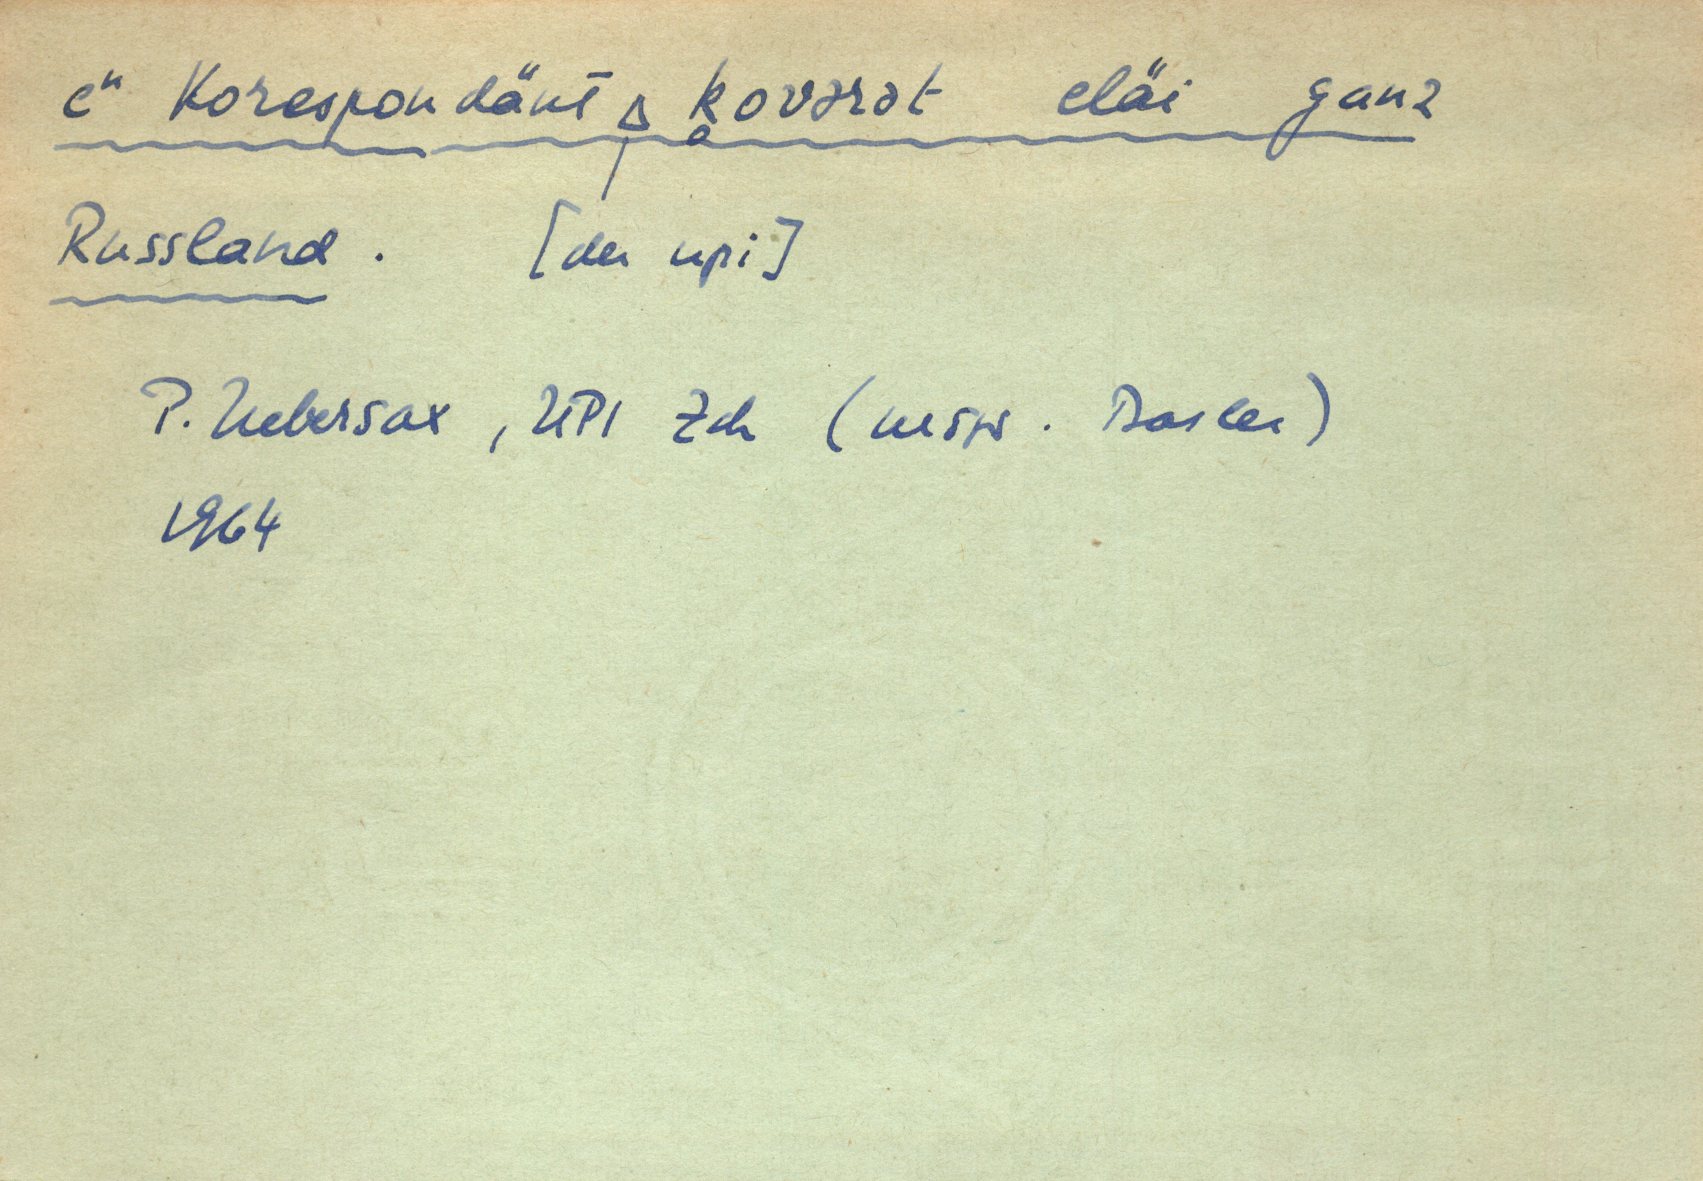 eⁿ Korespondänt k̥ovərət eläi ganz
Russland. [der upi]
P. Uebersax, UPI Zch (urspr. Basler)
1964